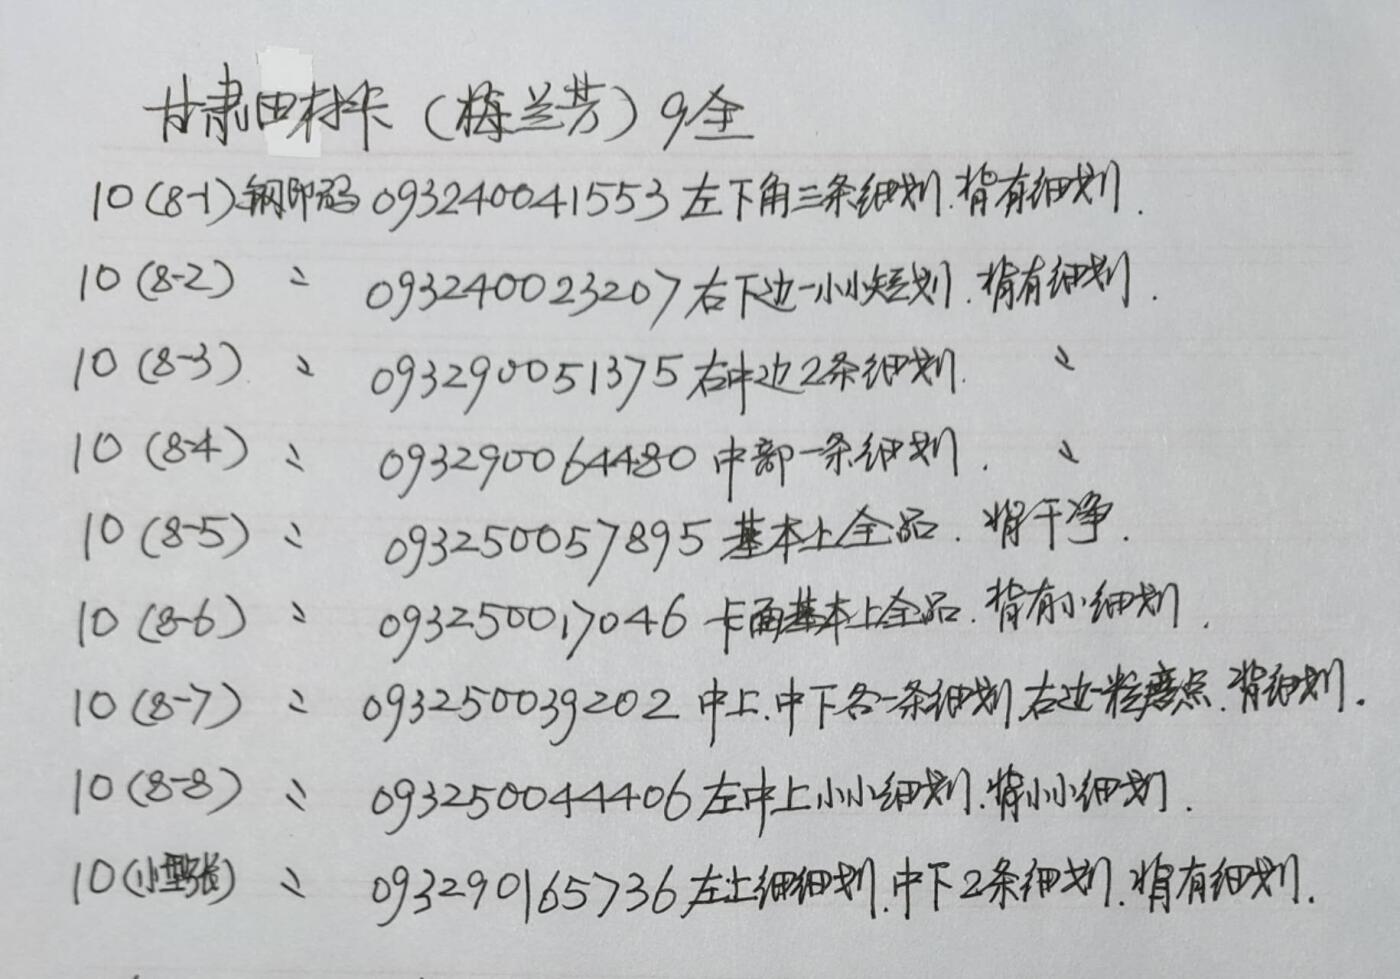 甘肃田村卡（梅兰芳）9全
10(8-1)钢印码 093240041553 左下角三条细划.背有细划.
10(8-2) 〃 093240023207 右下边一小小短划.背有细划.
10(8-3) 〃 093290051375 右中边2条细划. 〃
10(8-4) 〃 093290064480 中部一条细划. 〃
10(8-5) 〃 093250057895 基本上全品.背干净.
10(8-6) 〃 093250017046 卡面基本上全品.背有小细划.
10(8-7) 〃 093250039202 中上.中下各一条细划.右边一粒磨点.背细划.
10(8-8) 〃 093250044406 左中上小小细划.背小小细划.
10(小型张) 〃 093290165736 左上细细划.中下2条细划.背有细划.